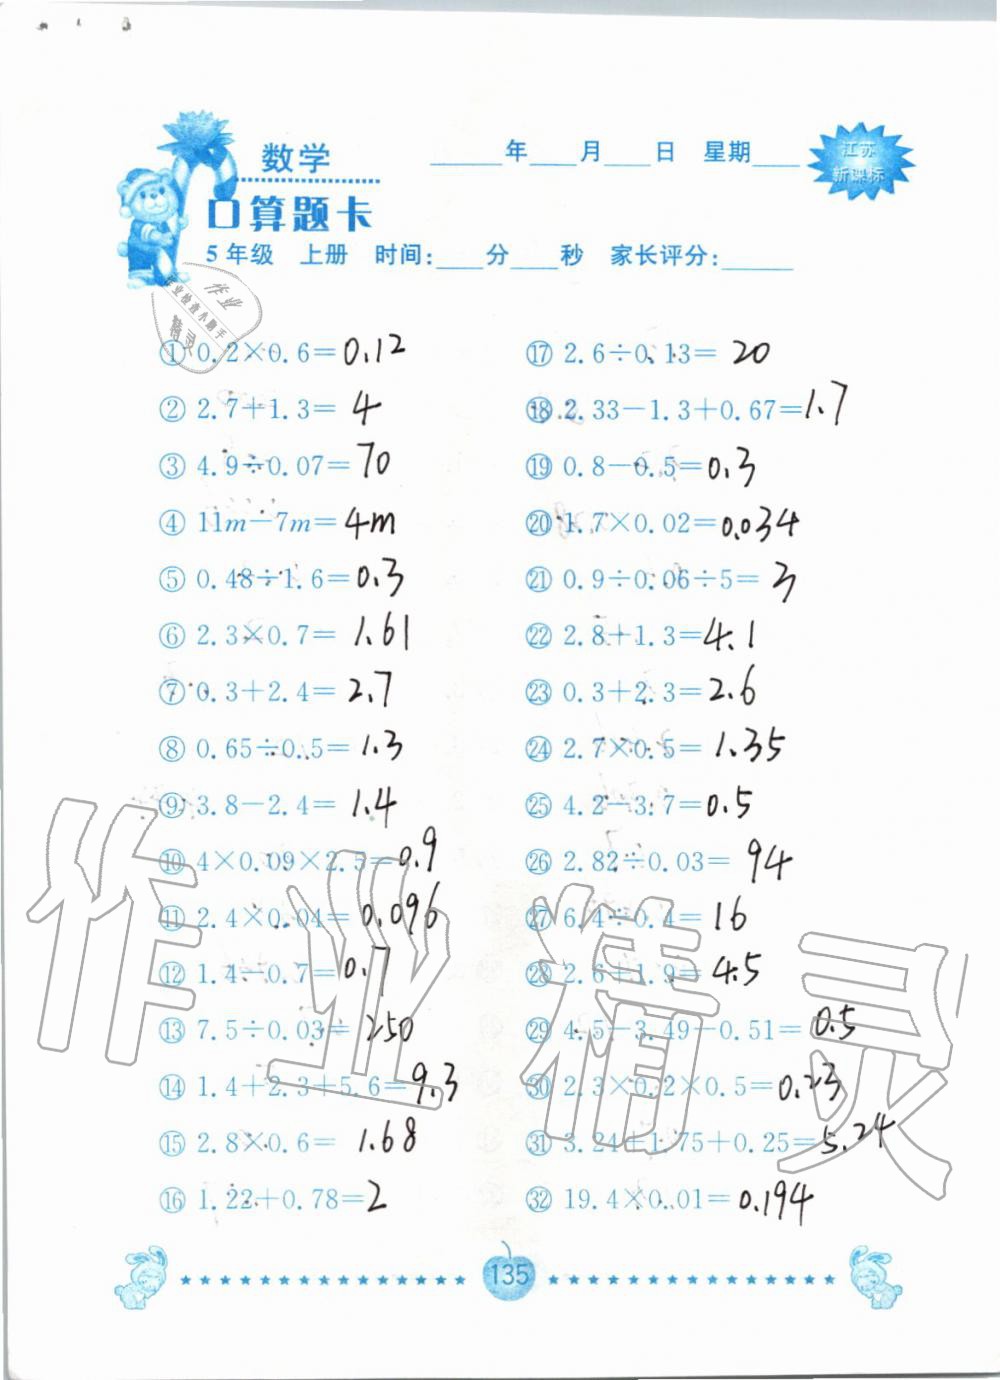 数学
____年____月____日 星期____
江苏
新课标
口算题卡
5年级 上册 时间:____分____秒 家长评分:____
作业
作业检查小助手
精灵
① 0.2×0.6=0.12
② 2.7+1.3=4
③ 4.9÷0.07=70
④ 11m-7m=4m
⑤ 0.48÷1.6=0.3
⑥ 2.3×0.7=1.61
⑦ 0.3+2.4=2.7
⑧ 0.65÷0.5=1.3
⑨ 3.8-2.4=1.4
⑩ 4×0.09×2.5=0.9
⑪ 2.4×0.04=0.096
⑫ 1.4-0.7=0.7
⑬ 7.5÷0.03=250
⑭ 1.4+2.3+5.6=9.3
⑮ 2.8×0.6=1.68
⑯ 1.22+0.78=2
⑰ 2.6÷0.13=20
⑱ 2.33-1.3+0.67=1.7
⑲ 0.8-0.5=0.3
⑳ 1.7×0.02=0.034
㉑ 0.9÷0.06÷5=3
㉒ 2.8+1.3=4.1
㉓ 0.3+2.3=2.6
㉔ 2.7×0.5=1.35
㉕ 4.2-3.7=0.5
㉖ 2.82÷0.03=94
㉗ 6.4÷0.4=16
㉘ 2.6+1.9=4.5
㉙ 4.5-3.49-0.51=0.5
㉚ 2.3×0.2×0.5=0.23
㉛ 3.24+1.75+0.25=5.24
㉜ 19.4×0.01=0.194
作业精灵
135